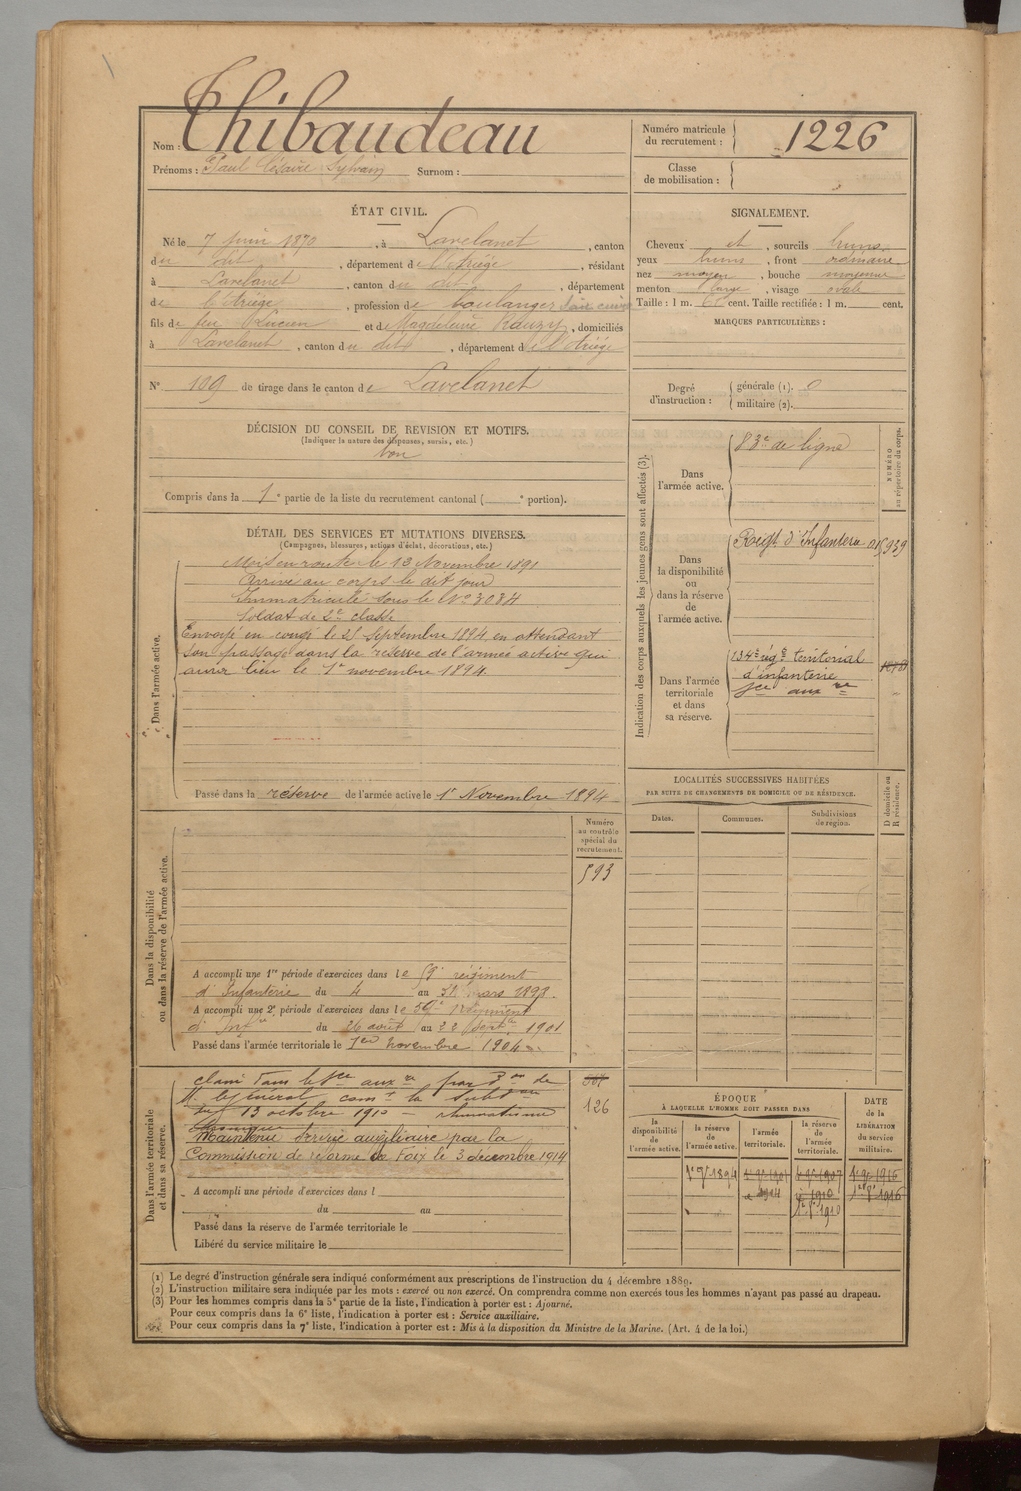 Nom : Thibaudeau
Prénoms : Paul Césaire Sylvain Surnom :
Numéro matricule du recrutement : 1226
Classe de mobilisation :
ÉTAT CIVIL.
Né le 7 juin 1870, à Lavelanet, canton
du dit, département de l'Ariège, résidant
à Lavelanet, canton du dit, département
de l'Ariège, profession de boulanger
fils de feu Lucien et de Magdeleine Rauzy, domiciliés
à Lavelanet, canton du dit, département de l'Ariège
N° 109 de tirage dans le canton de Lavelanet
SIGNALEMENT.
Cheveux et, sourcils bruns
yeux bruns, front ordinaire
nez moyen, bouche moyenne
menton large, visage ovale
Taille : 1 m. cent. Taille rectifiée : 1 m. cent.
MARQUES PARTICULIÈRES :
Degré d'instruction : générale (1). 0
militaire (2).
DÉCISION DU CONSEIL DE REVISION ET MOTIFS.
(Indiquer la nature des dispenses, sursis, etc.)
bon
Compris dans la 1e partie de la liste du recrutement cantonal ( e portion).
DÉTAIL DES SERVICES ET MUTATIONS DIVERSES.
(Campagnes, blessures, actions d'éclat, décorations, etc.)
Dans l'armée active.
Mis en route le 13 Novembre 1891
Arrivé au corps le dit jour
Immatriculé sous le N° 3084
Soldat de 2e classe
Envoyé en congé le 25 Septembre 1894 en attendant
son passage dans la réserve de l'armée active qui
aura lieu le 1er novembre 1894.
Passé dans la réserve de l'armée active le 1er Novembre 1894
Indication des corps auxquels les jeunes gens sont affectés (3).
NUMÉRO au répertoire du corps.
Dans l'armée active.
83e de ligne
Dans la disponibilité ou dans la réserve de l'armée active.
Régt d'Infanterie
Dans l'armée territoriale et dans sa réserve.
134e rég territorial
d'infanterie
sce aux re
LOCALITÉS SUCCESSIVES HABITÉES
PAR SUITE DE CHANGEMENTS DE DOMICILE OU DE RÉSIDENCE.
Dates.
Communes.
Subdivisions de région.
D domicile ou R résidence.
Dans la disponibilité ou dans la réserve de l'armée active.
Numéro au contrôle spécial du recrutement.
593
A accompli une 1re période d'exercices dans le 59e régiment
d'Infanterie du 4 au 31 mars 1898.
A accompli une 2e période d'exercices dans le 59e régiment
d'Infie du 26 août au 22 Septe 1901
Passé dans l'armée territoriale le 1er novembre 1904
Dans l'armée territoriale et dans sa réserve.
classé dans le sce aux re par Don de
M. le Général comt la Subdon
le 13 octobre 1910 - rhumatisme
chronique
Maintenu service auxiliaire par la
Commission de réforme de Foix le 3 decembre 1914
126
A accompli une période d'exercices dans l
du au
Passé dans la réserve de l'armée territoriale le
Libéré du service militaire le
ÉPOQUE
À LAQUELLE L'HOMME DOIT PASSER DANS
la disponibilité de l'armée active.
la réserve de l'armée active.
l'armée territoriale.
la réserve de l'armée territoriale.
DATE de la LIBÉRATION du service militaire.
1er 9e 1894
1904
1er 9e 1910
(1) Le degré d'instruction générale sera indiqué conformément aux prescriptions de l'instruction du 4 décembre 1889.
(2) L'instruction militaire sera indiquée par les mots : exercé ou non exercé. On comprendra comme non exercés tous les hommes n'ayant pas passé au drapeau.
(3) Pour les hommes compris dans la 5e partie de la liste, l'indication à porter est : Ajourné.
Pour ceux compris dans la 6e liste, l'indication à porter est : Service auxiliaire.
Pour ceux compris dans la 7e liste, l'indication à porter est : Mis à la disposition du Ministre de la Marine. (Art. 4 de la loi.)